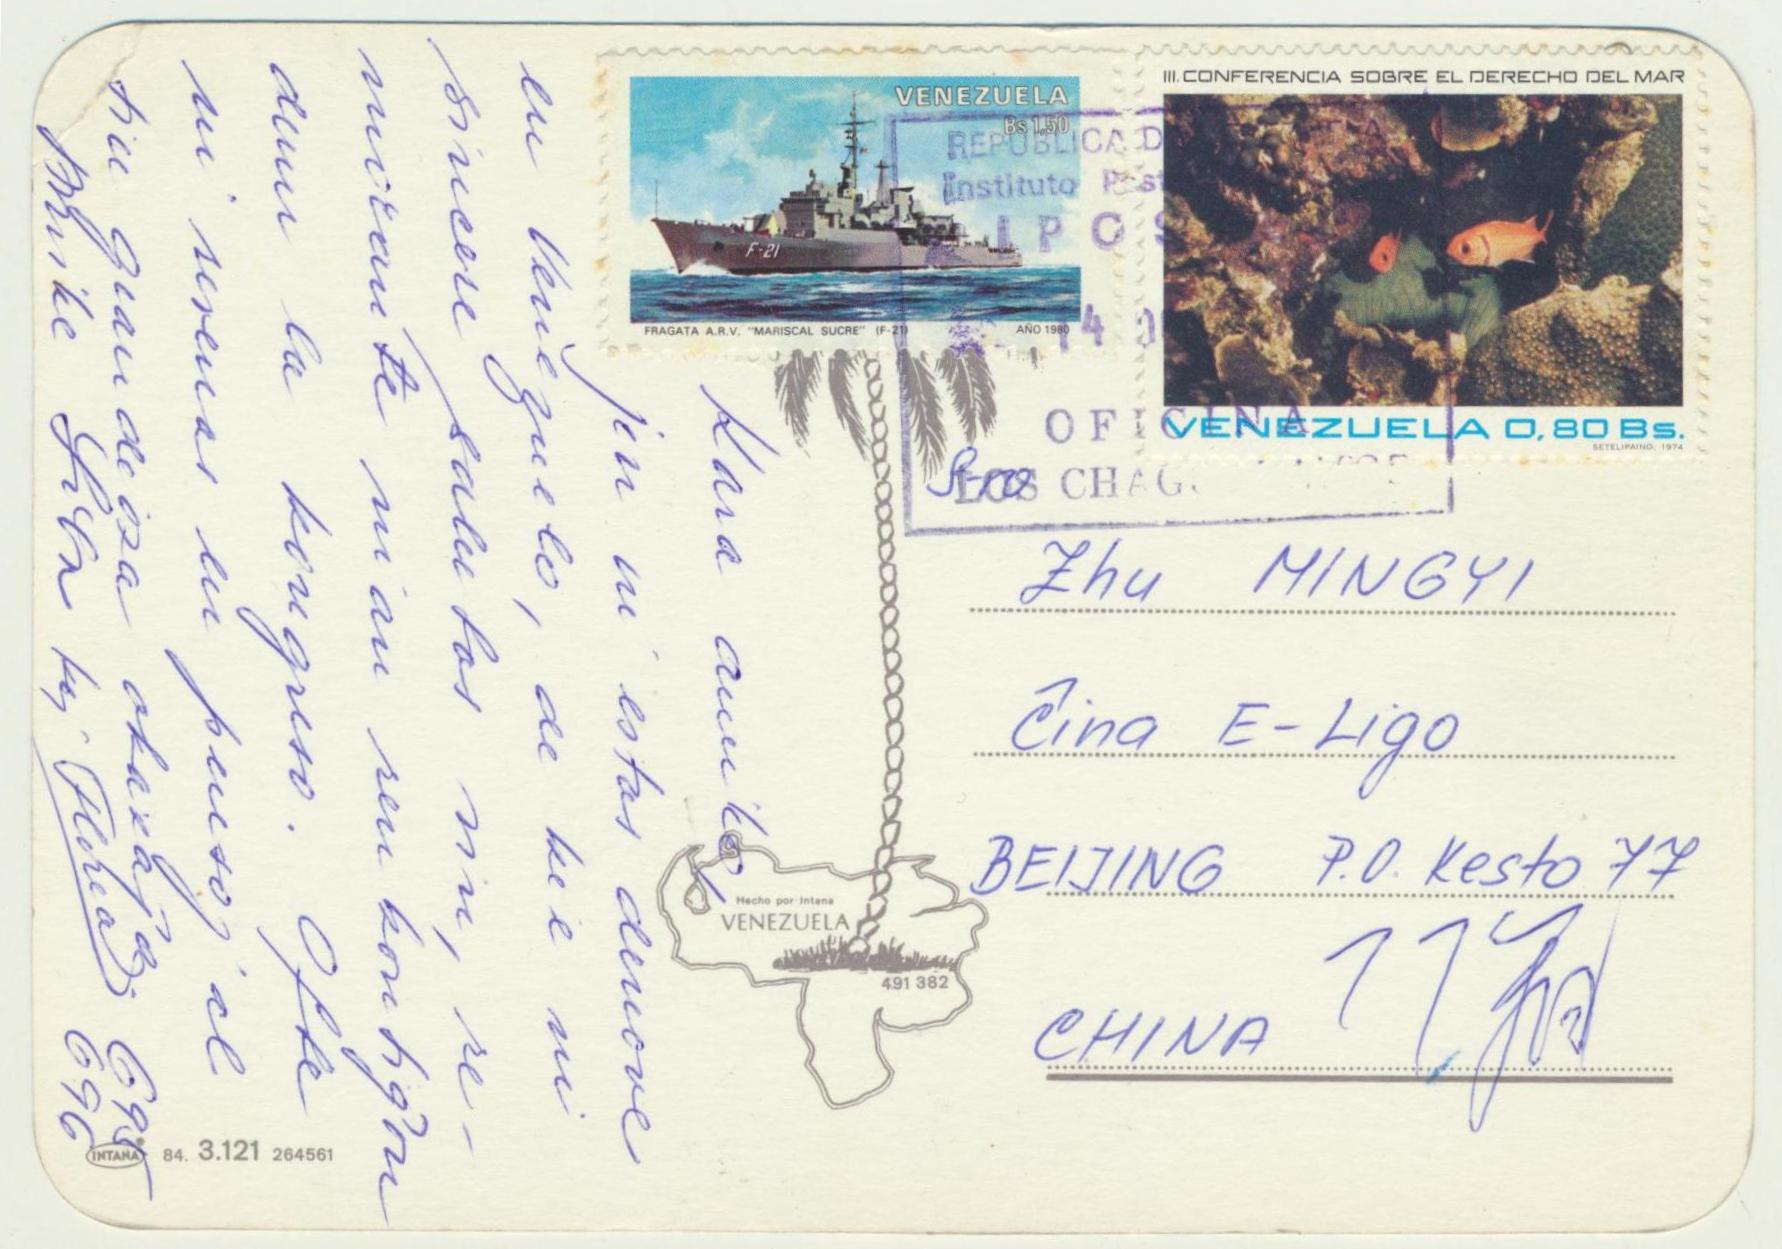 VENEZUELA
Bs 1,50
FRAGATA A.R.V. "MARISCAL SUCRE" (F-21) AÑO 1980
F-21
III. CONFERENCIA SOBRE EL DERECHO DEL MAR
VENEZUELA 0,80 Bs.
SETELIPAINO, 1974
REPUBLICA D
Instituto Post
IPOS
OFICINA
LOS CHAG
Kara amiko,
jen ni estas denove
en Venezuelo, de kie ni
sincere salutas vin, re-
dum la kongreso. Ofte
ni revenas en penso, al
tiu grandioza okazaĵo
S-ro
Zhu MINGYI
Ĉina E-Ligo
BEIJING P.O. Kesto 77
CHINA
Hecho por Intana
VENEZUELA
491 382
INTANA 84. 3.121 264561
695
696